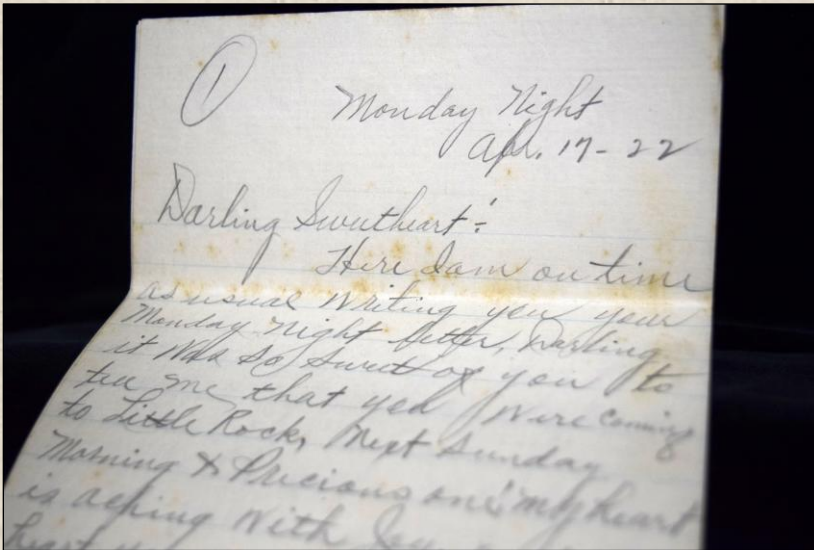 1
Monday Night
Apr. 17-22
Darling Sweetheart:-
Here I am on time
as usual writing you your
Monday night letter, Darling
it was so sweet of you to
tell me that you were coming
to Little Rock, next Sunday
Morning & Precious one my heart
is aching with Joy
heart